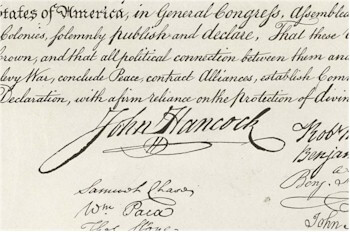 States of America, in General Congress, Assembled
Colonies, solemnly publish and declare, That these
Crown, and that all political connection between them and
levy War, conclude Peace, contract Alliances, establish Com
Declaration, with a firm reliance on the protection of divin
John Hancock
Rob
Benja
Samuel Chase
Benj.
Wm Paca
John
Thos Stone